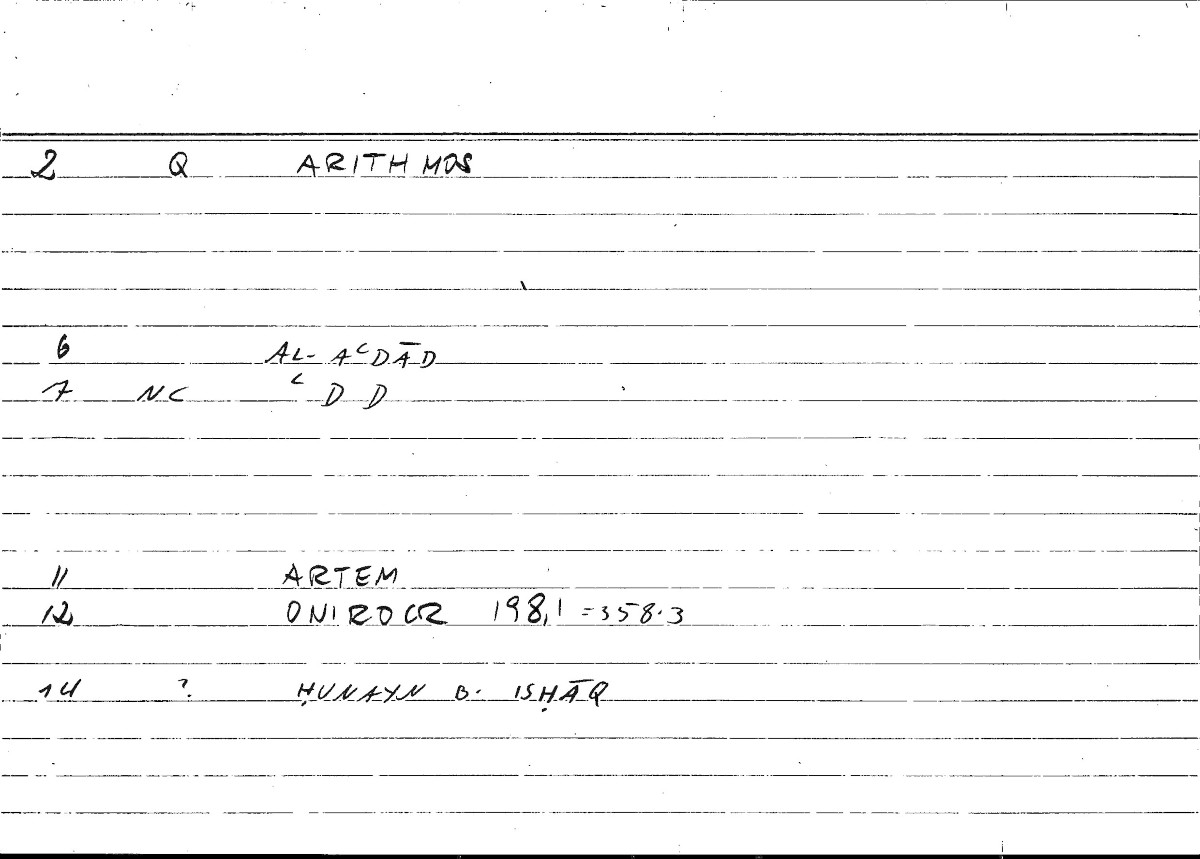 2 Q ARITHMOS
6 AL- AᶜDĀD
7 NC ᶜDD
11 ARTEM
12 ONIROCR 198,1 =358.3
14 ? ḤUNAYN B. ISḤĀQ